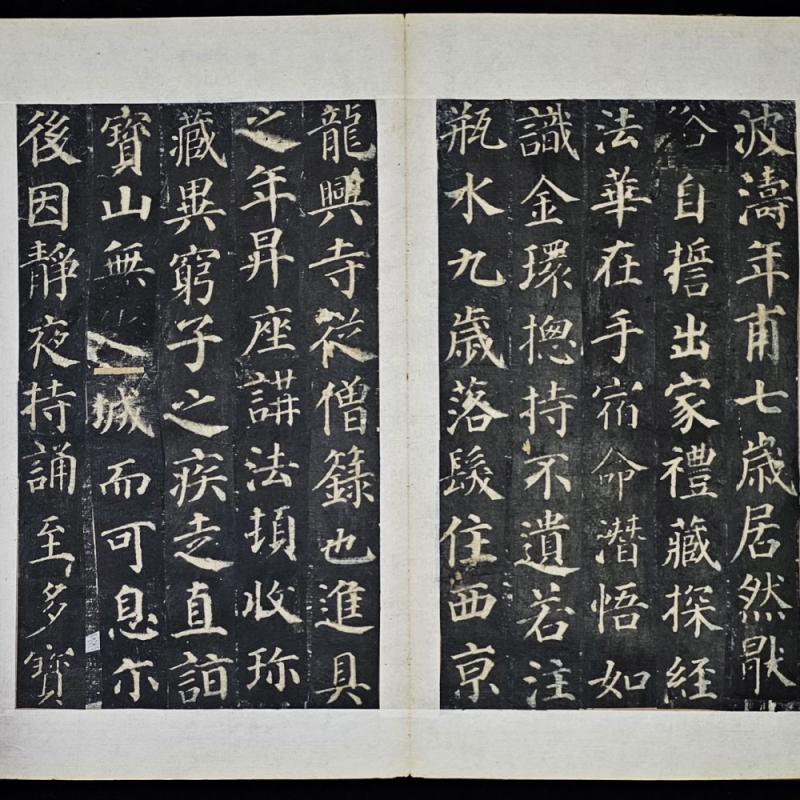 波濤年甫七歲居然猒
俗自誓出家禮藏探經
法華在手宿命潛悟如
識金環揔持不遺若注
瓶水九歲落髮住西京
龍興寺從僧籙也進具
之年昇座講法頓收珎
藏異窮子之疾走直詣
寶山無化城而可息尒
後因靜夜持誦至多寶